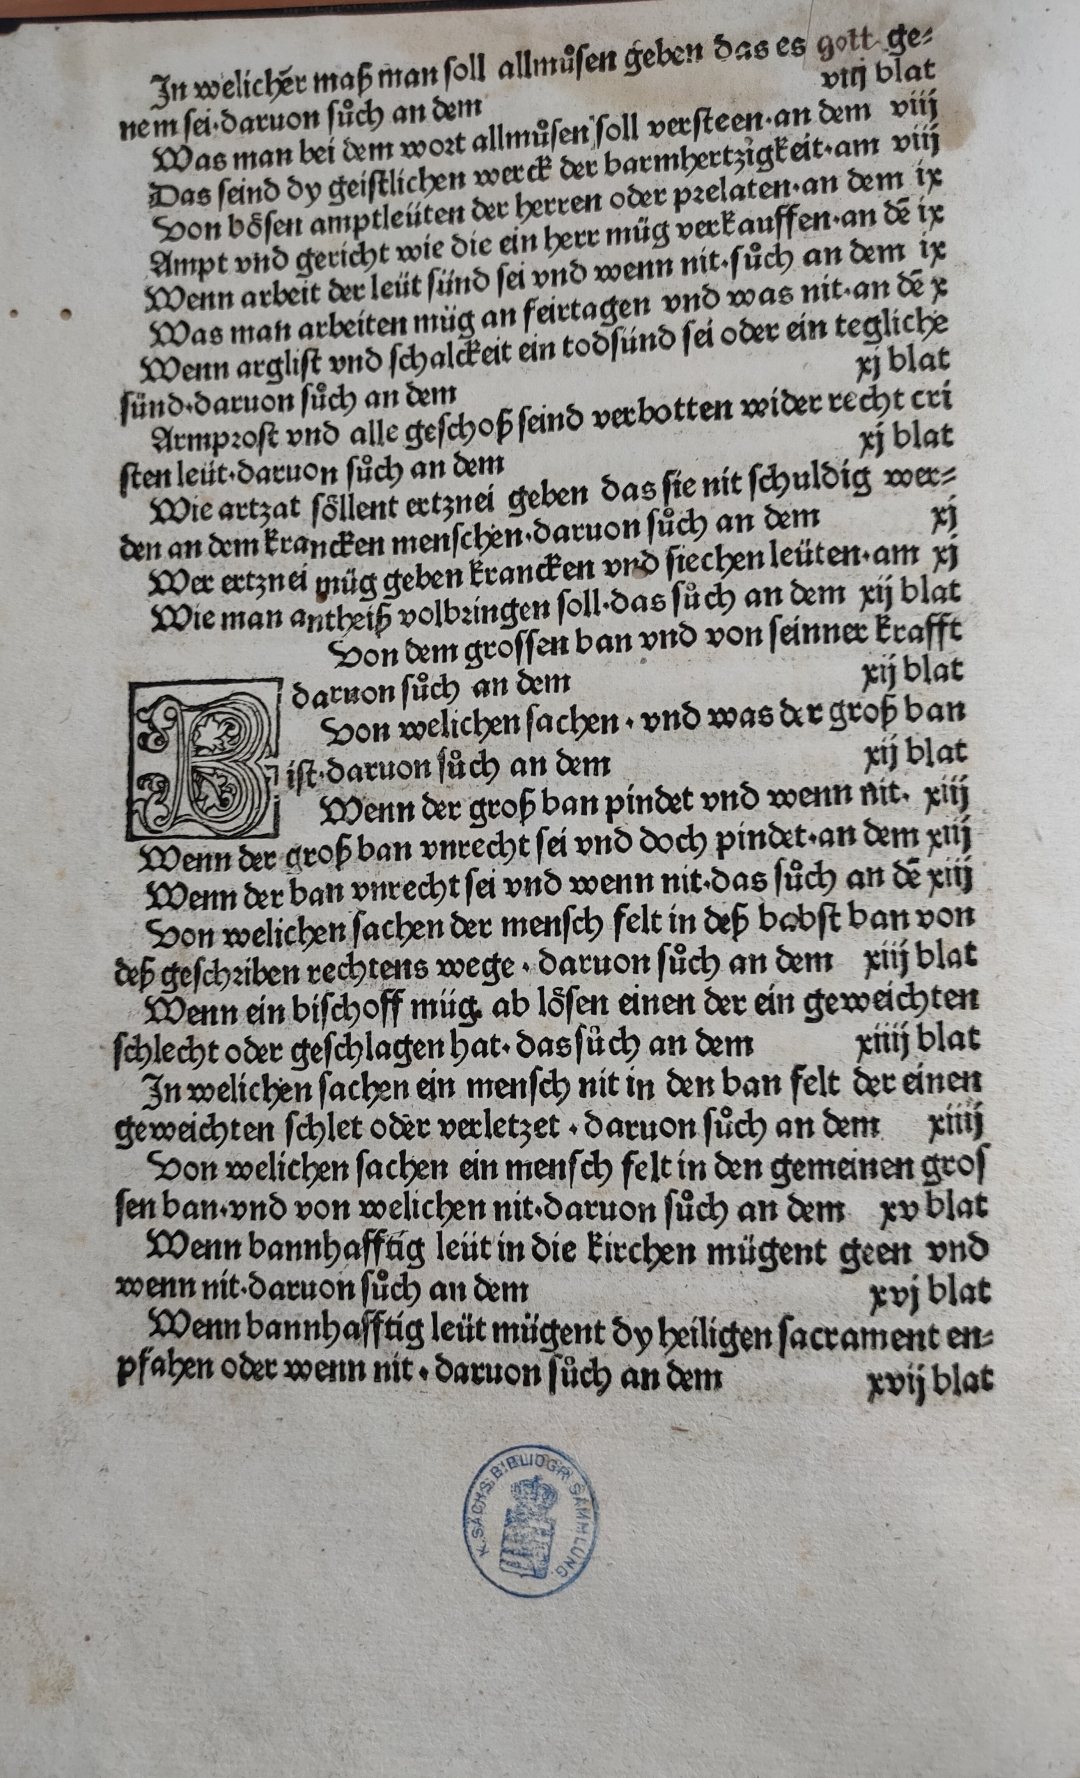 In welicher maß man soll allmůsen geben das es gott ge⸗
nem sei·daruon sůch an dem viij blat
Was man bei dem wort allmůsen soll versteen·an dem viij
Das seind dy geistlichen werck der barmhertzigkeit·am viij
Von bösen amptleüten der herren oder prelaten·an dem ix
Ampt vnd gericht wie die ein herr müg verkauffen·an dē ix
Wenn arbeit der leüt sünd sei vnd wenn nit·sůch an dem ix
Was man arbeiten müg an feirtagen vnd was nit·an dē x
Wenn arglist vnd schalckeit ein todsünd sei oder ein tegliche
sünd·daruon sůch an dem xj blat
Armprost vnd alle geschoß seind verbotten wider recht cri
sten leüt·daruon sůch an dem xj blat
Wie artzat söllent ertznei geben das sie nit schuldig wer⸗
den an dem krancken menschen·daruon sůch an dem xj
Wer ertznei müg geben krancken vnd siechen leüten·am xj
Wie man antheiß volbringen soll·das sůch an dem xij blat
Von dem grossen ban vnd von seinner krafft
daruon sůch an dem xij blat
B Von welichen sachen·vnd was der groß ban
ist·daruon sůch an dem xij blat
Wenn der groß ban pindet vnd wenn nit· xiij
Wenn der groß ban vnrecht sei vnd doch pindet·an dem xiij
Wenn der ban vnrecht sei vnd wenn nit·das sůch an dē xiij
Von welichen sachen der mensch felt in deß babst ban von
deß geschriben rechtens wege·daruon sůch an dem xiij blat
Wenn ein bischoff müg ab lösen einen der ein geweichten
schlecht oder geschlagen hat·das sůch an dem xiiij blat
In welichen sachen ein mensch nit in den ban felt der einen
geweichten schlet oder verletzet·daruon sůch an dem xiiij
Von welichen sachen ein mensch felt in den gemeinen gros
sen ban·vnd von welichen nit·daruon sůch an dem xv blat
Wenn bannhafftig leüt in die kirchen mügent geen vnd
wenn nit·daruon sůch an dem xvj blat
Wenn bannhafftig leüt mügent dy heiligen sacrament en⸗
pfahen oder wenn nit·daruon sůch an dem xvij blat
K. SÄCHS. BIBLIOGR. SAMMLUNG.